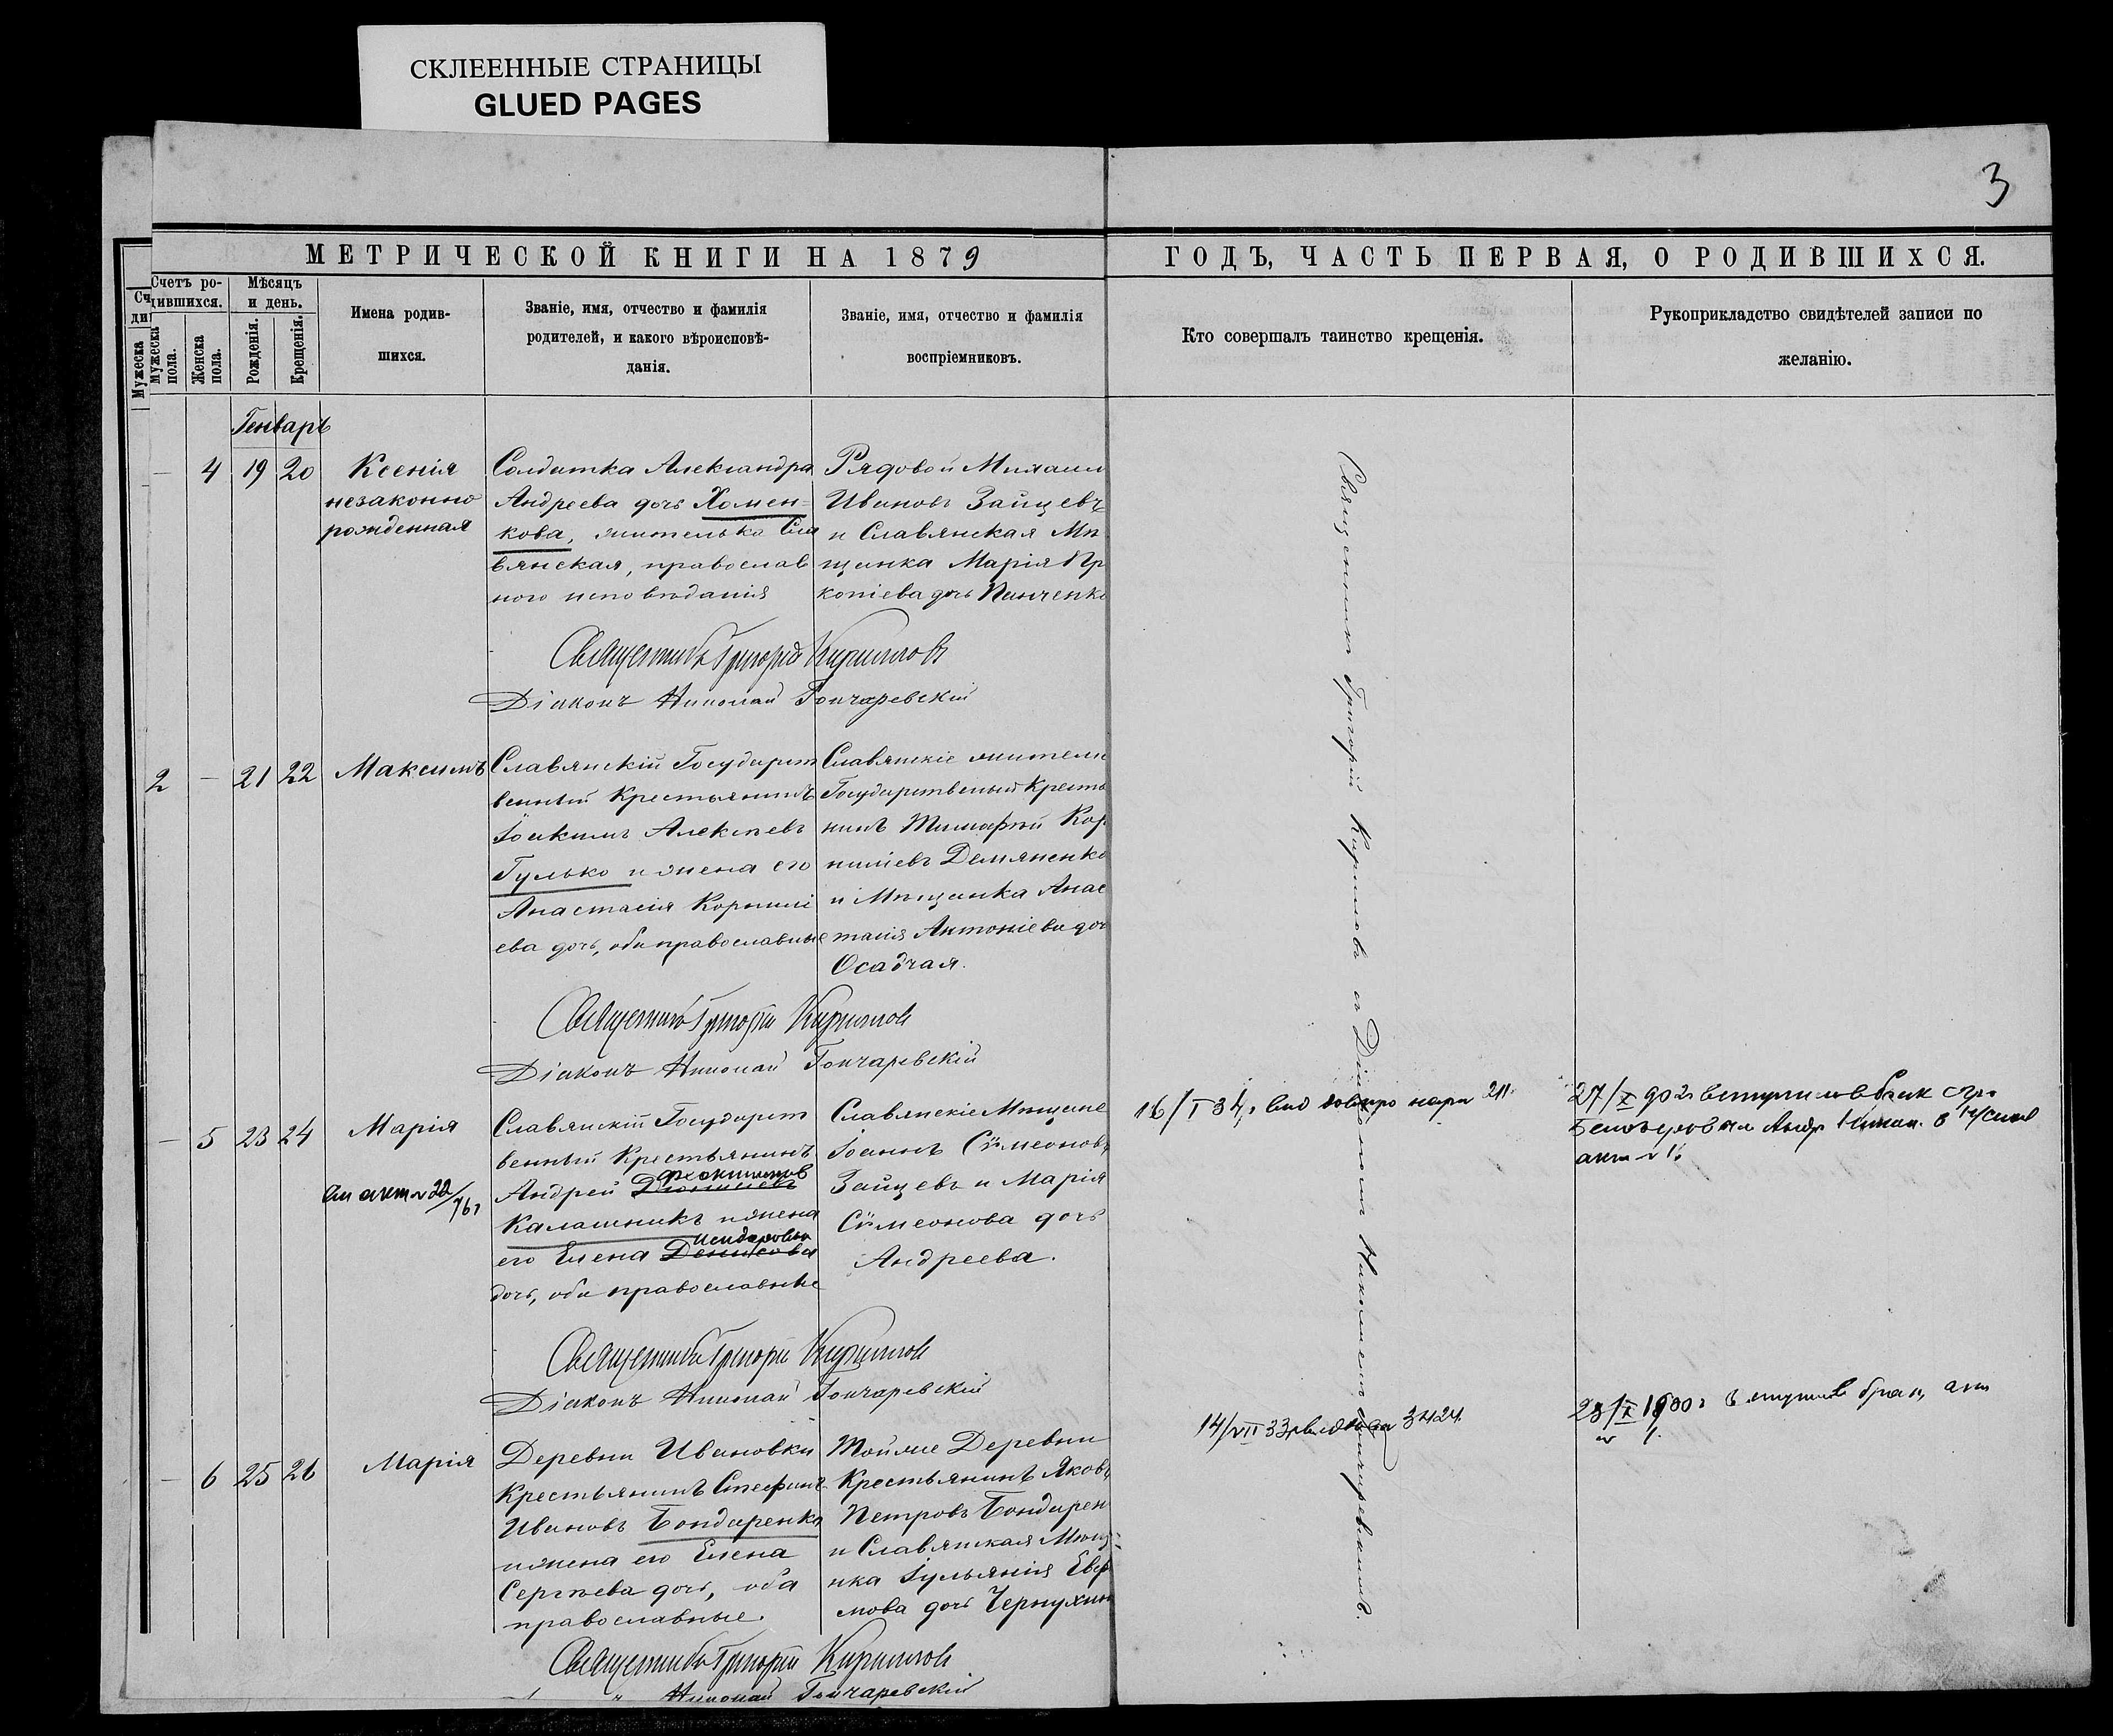 СКЛЕЕННЫЕ СТРАНИЦЫ
GLUED PAGES
3
МЕТРИЧЕСКОЙ КНИГИ НА 1879
ГОДЪ, ЧАСТЬ ПЕРВАЯ, О РОДИВШИХСЯ.
Счетъ ро-
дившихся.
Мужеска пола.
Женска пола.
Мѣсяцъ
и день.
Рожденія.
Крещенія.
Имена родив-
шихся.
Званіе, имя, отчество и фамилія
родителей, и какого вѣроисповѣ-
данія.
Званіе, имя, отчество и фамилія
воспріемниковъ.
Кто совершалъ таинство крещенія.
Рукоприкладство свидѣтелей записи по
желанію.
Мужеска
Генварь
— 4 19 20
Ксенія
незаконно
рожденная
Солдатка Александра
Андреева дочь Хомен=
кова, жителька Сла
вянская, православ
ного исповѣданія
Рядовой Михаил
Ивановъ Зайцевъ
и Славянская Мѣ
щанка Марія Пр
копіева дочь Панченко
Священникъ Григорій Кирилловъ
Діаконъ Николай Гончаревскій
2 — 21 22
Максимъ
Славянскій Государст
венный Крестьянинъ
Іоакимъ Алексѣевъ
Гулько и жена его
Анастасія Корнилі
ева дочь, оба православные
Славянскіе жители
Государственный Кресть
нинъ Тимофѣй Кор
ниліевъ Демяненко
и Мѣщанка Анас
тасія Антоніева доч
Осадчая.
Священникъ Григорій Кирилловъ
Діаконъ Николай Гончаревскій
— 5 23 24
Марія
Славянскій Государст
венный Крестьянинъ
Андрей
Калашникъ и жена
его Елена Денисова
дочь, оба православные
Славянскіе Мѣщане
Іоаннъ Сѵмеоновъ
Зайцевъ и Марія
Сѵмеонова дочь
Андреева.
Священникъ Григорій Кирилловъ
Діаконъ Николай Гончаревскій
— 6 25 26
Марія
Деревни Ивановки
Крестьянинъ Стефанъ
Ивановъ Бондаренко
и жена его Елена
Сергѣева дочь, оба
православные.
Тойже Деревни
Крестьянинъ Яковъ
Петровъ Бондарен
и Славянская Мѣщ
нка Іульянія Евф
мова дочь Чернухин
Священникъ Григорій Кирилловъ
" Николай Гончаревскій
Священникъ Григорій Кирилловъ съ Діакономъ Николаемъ Гончаревскимъ.